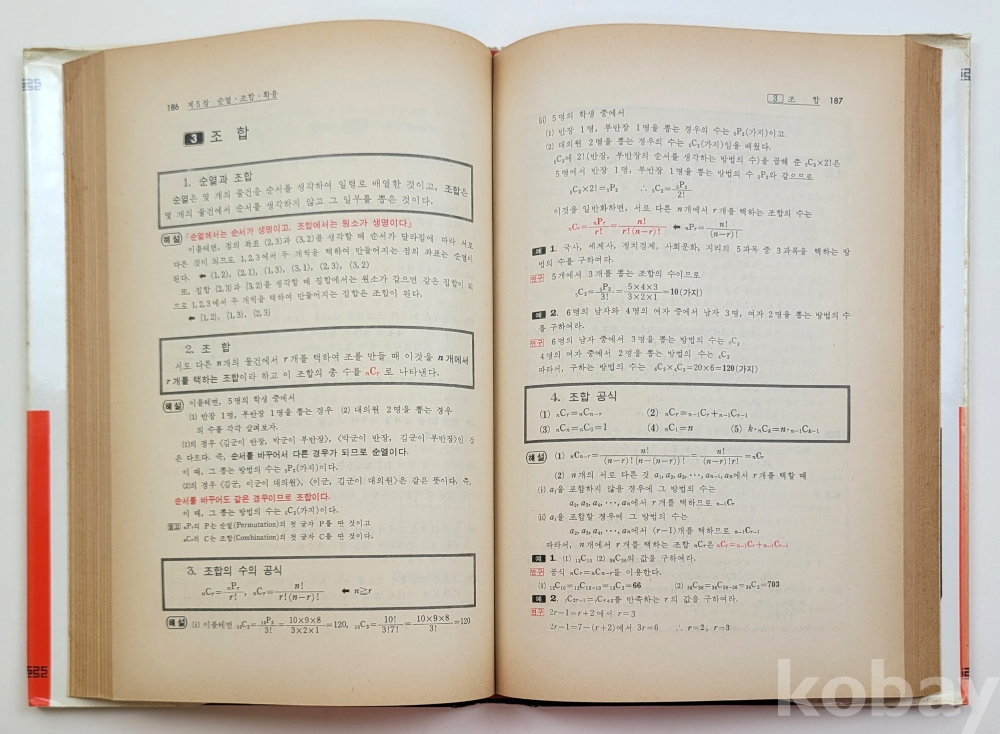 186 제5장 순열·조합·확률
3 조 합
1. 순열과 조합
순열은 몇 개의 물건을 순서를 생각하여 일렬로 배열한 것이고, 조합은
몇 개의 물건에서 순서를 생각하지 않고 그 일부를 뽑은 것이다.
해설 「순열에서는 순서가 생명이고, 조합에서는 원소가 생명이다」
이를테면, 점의 좌표 (2, 3)과 (3, 2)를 생각할 때 순서가 달라짐에 따라 서로
다른 것이 되므로 1, 2, 3에서 두 개씩을 택하여 만들어지는 점의 좌표는 순열이
된다. ← (1, 2), (2, 1), (1, 3), (3, 1), (2, 3), (3, 2)
또, 집합 {2, 3}과 {3, 2}를 생각할 때 집합에서는 원소가 같으면 같은 집합이 되
므로 1, 2, 3에서 두 개씩을 택하여 만들어지는 집합은 조합이 된다.
← {1, 2}, {1, 3}, {2, 3}
2. 조 합
서로 다른 n개의 물건에서 r개를 택하여 조를 만들 때 이것을 n개에서
r개를 택하는 조합이라 하고 이 조합의 총 수를 nCr 로 나타낸다.
해설 이를테면, 5명의 학생 중에서
(1) 반장 1명, 부반장 1명을 뽑는 경우 (2) 대의원 2명을 뽑는 경우
의 수를 각각 살펴보자.
(1)의 경우 〈김군이 반장, 박군이 부반장〉, 〈박군이 반장, 김군이 부반장〉인 것
은 다르다. 즉, 순서를 바꾸어서 다른 경우가 되므로 순열이다.
이 때, 그 뽑는 방법의 수는 5P2(가지)이다.
(2)의 경우 〈김군, 이군이 대의원〉, 〈이군, 김군이 대의원〉은 같은 뜻이다. 즉,
순서를 바꾸어도 같은 경우이므로 조합이다.
이 때, 그 뽑는 방법의 수는 5C2(가지)이다.
참고 nPr의 P는 순열(Permutation)의 첫 글자 P를 딴 것이고
nCr의 C는 조합(Combination)의 첫 글자 C를 딴 것이다.
3. 조합의 수의 공식
nCr = nPr/r!, nCr = n!/r!(n−r)! ← n≥r
해설 (i) 이를테면 10C3 = 10P3/3! = 10×9×8/3×2×1 = 120, 10C3 = 10!/3!7! = 10×9×8/3! = 120
3 조 합 187
(ii) 5명의 학생 중에서
(1) 반장 1명, 부반장 1명을 뽑는 경우의 수는 5P2(가지)이고
(2) 대의원 2명을 뽑는 경우의 수는 5C2(가지)임을 배웠다.
5C2에 2!(반장, 부반장의 순서를 생각하는 방법의 수)을 곱해 준 5C2×2!은
5명에서 반장 1명, 부반장 1명을 뽑는 방법의 수 5P2와 같으므로
5C2×2! = 5P2 ∴ 5C2 = 5P2/2!
이것을 일반화하면, 서로 다른 n개에서 r개를 택하는 조합의 수는
nCr = nPr/r! = n!/r!(n−r)! ← nPr = n!/(n−r)!
예 1. 국사, 세계사, 정치경제, 사회문화, 지리의 5과목 중 3과목을 택하는 방
법의 수를 구하여라.
연구 5개에서 3개를 뽑는 조합의 수이므로
5C3 = 5P3/3! = 5×4×3/3×2×1 = 10(가지)
예 2. 6명의 남자와 4명의 여자 중에서 남자 3명, 여자 2명을 뽑는 방법의 수
를 구하여라.
연구 6명의 남자 중에서 3명을 뽑는 방법의 수는 6C3
4명의 여자 중에서 2명을 뽑는 방법의 수는 4C2
따라서, 구하는 방법의 수는 6C3×4C2 = 20×6 = 120(가지)
4. 조합 공식
(1) nCr = nCn−r (2) nCr = n−1Cr + n−1Cr−1
(3) nCn = nC0 = 1 (4) nC1 = n (5) k·nCk = n·n−1Ck−1
해설 (1) nCn−r = n!/(n−r)!{n−(n−r)}! = n!/(n−r)!r! = nCr
(2) n개의 서로 다른 것 a1, a2, a3, ···, an−1, an에서 r개를 택할 때
(i) a1을 포함하지 않을 경우에 그 방법의 수는
a2, a3, a4, ···, an에서 r개를 택하므로 n−1Cr
ii) a1을 포함할 경우에 그 방법의 수는
a2, a3, a4, ···, an에서 (r−1)개를 택하므로 n−1Cr−1
따라서, n개에서 r개를 택하는 조합 nCr은 nCr = n−1Cr + n−1Cr−1
예 1. (1) 12C10 (2) 38C36의 값을 구하여라.
연구 공식 nCr = nCn−r를 이용한다.
(1) 12C10 = 12C12−10 = 12C2 = 66 (2) 38C36 = 38C38−36 = 38C2 = 703
예 2. 7C2r−1 = 7Cr+2를 만족하는 r의 값을 구하여라.
연구 2r−1 = r+2에서 r = 3
2r−1 = 7−(r+2)에서 3r = 6 ∴ r = 2, r = 3
kobay